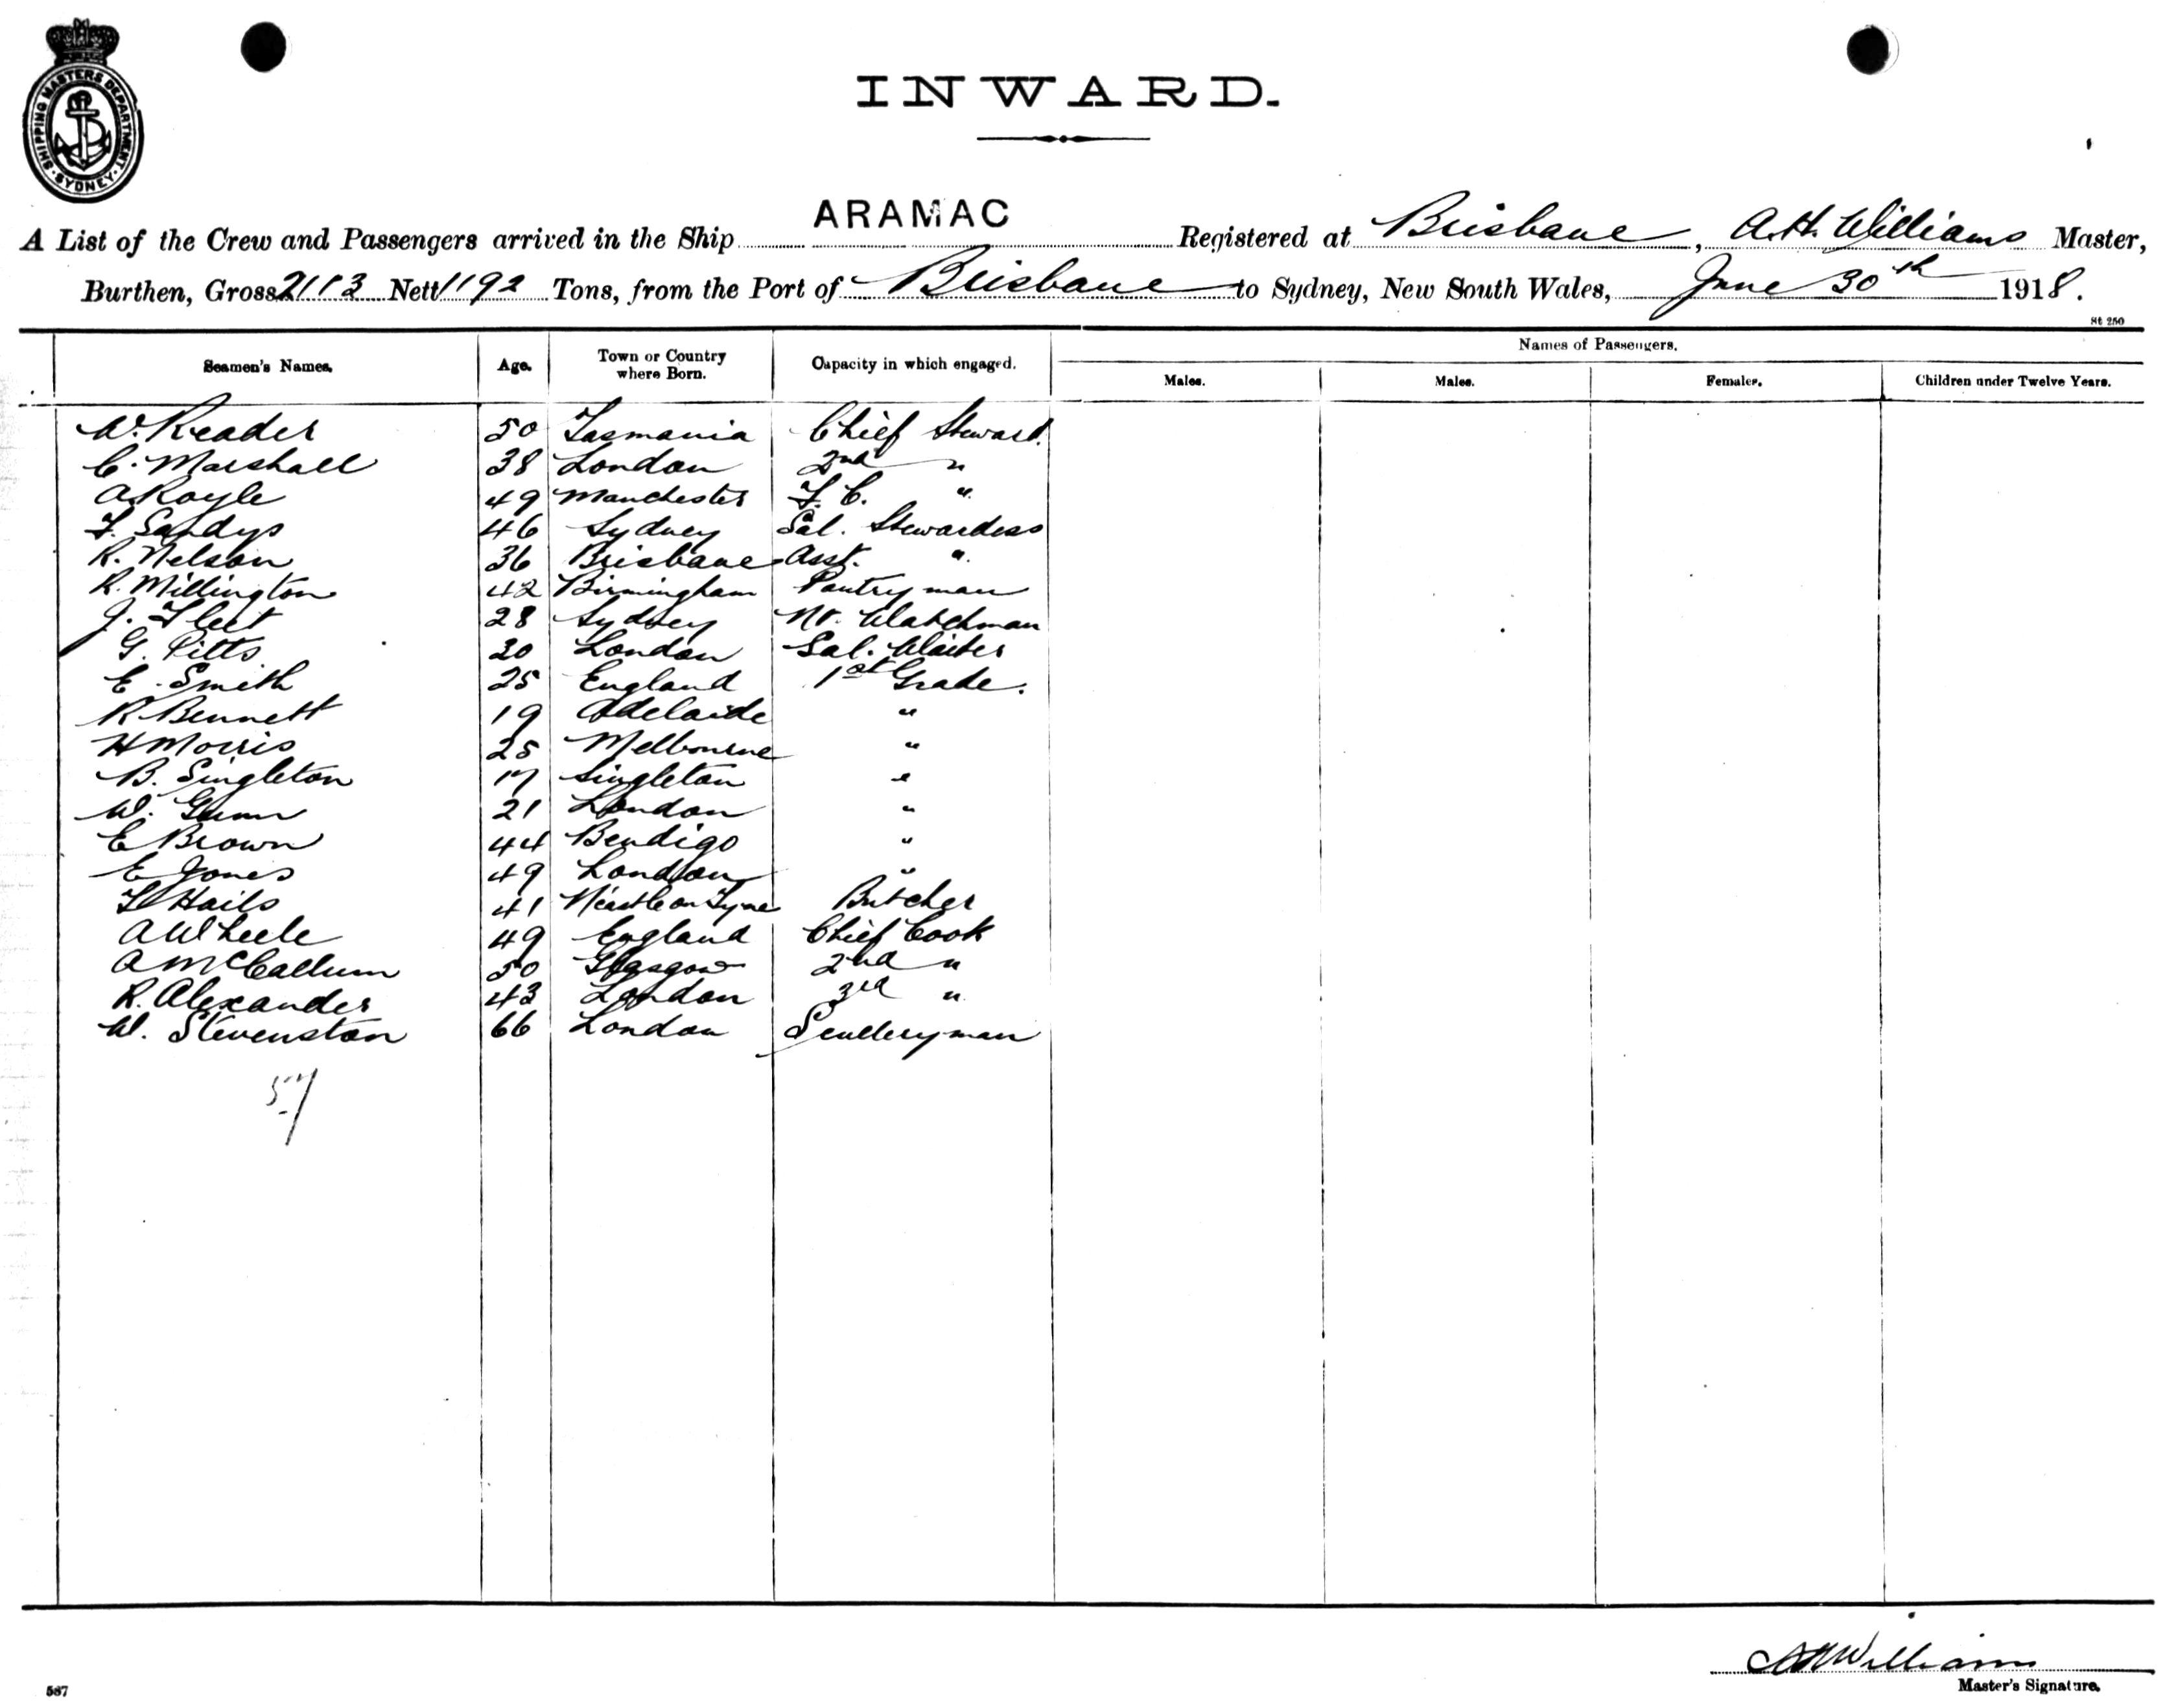 SHIPPING MASTERS DEPARTMENT
SYDNEY
INWARD.
A List of the Crew and Passengers arrived in the Ship ARAMAC Registered at Brisbane, A.H. Williams Master,
Burthen, Gross 2113 Nett 1192 Tons, from the Port of Brisbane to Sydney, New South Wales, June 30th 1918.
St 250
Seamen's Names. Age. Town or Country where Born. Capacity in which engaged. Names of Passengers.
Males. Males. Females. Children under Twelve Years.
W. Reader 50 Tasmania Chief Steward.
C. Marshall 38 London 2nd "
A Royle 49 Manchester F. C. "
F. Sandys 46 Sydney Sal. Stewardess
R. Nelson 36 Brisbane Asst. "
R. Millington 42 Birmingham Pantryman
J. Fleet 28 Sydney Nt. Watchman
G. Pitts 30 London Sal. Waiter
E. Smith 25 England 1st Grade.
R Bennett 19 Adelaide "
H Morris 25 Melbourne "
B. Singleton 17 Singleton "
W. Gunn 21 London "
E Brown 44 Bendigo "
E Jones 49 London "
Hails 41 N'castle on Tyne Butcher
A 49 England Chief Cook
A McCallum 50 Glasgow 2nd "
R. Alexander 43 London 3rd "
W. Stevenston 66 London Sculleryman
57
AH Williams
Master's Signature.
587